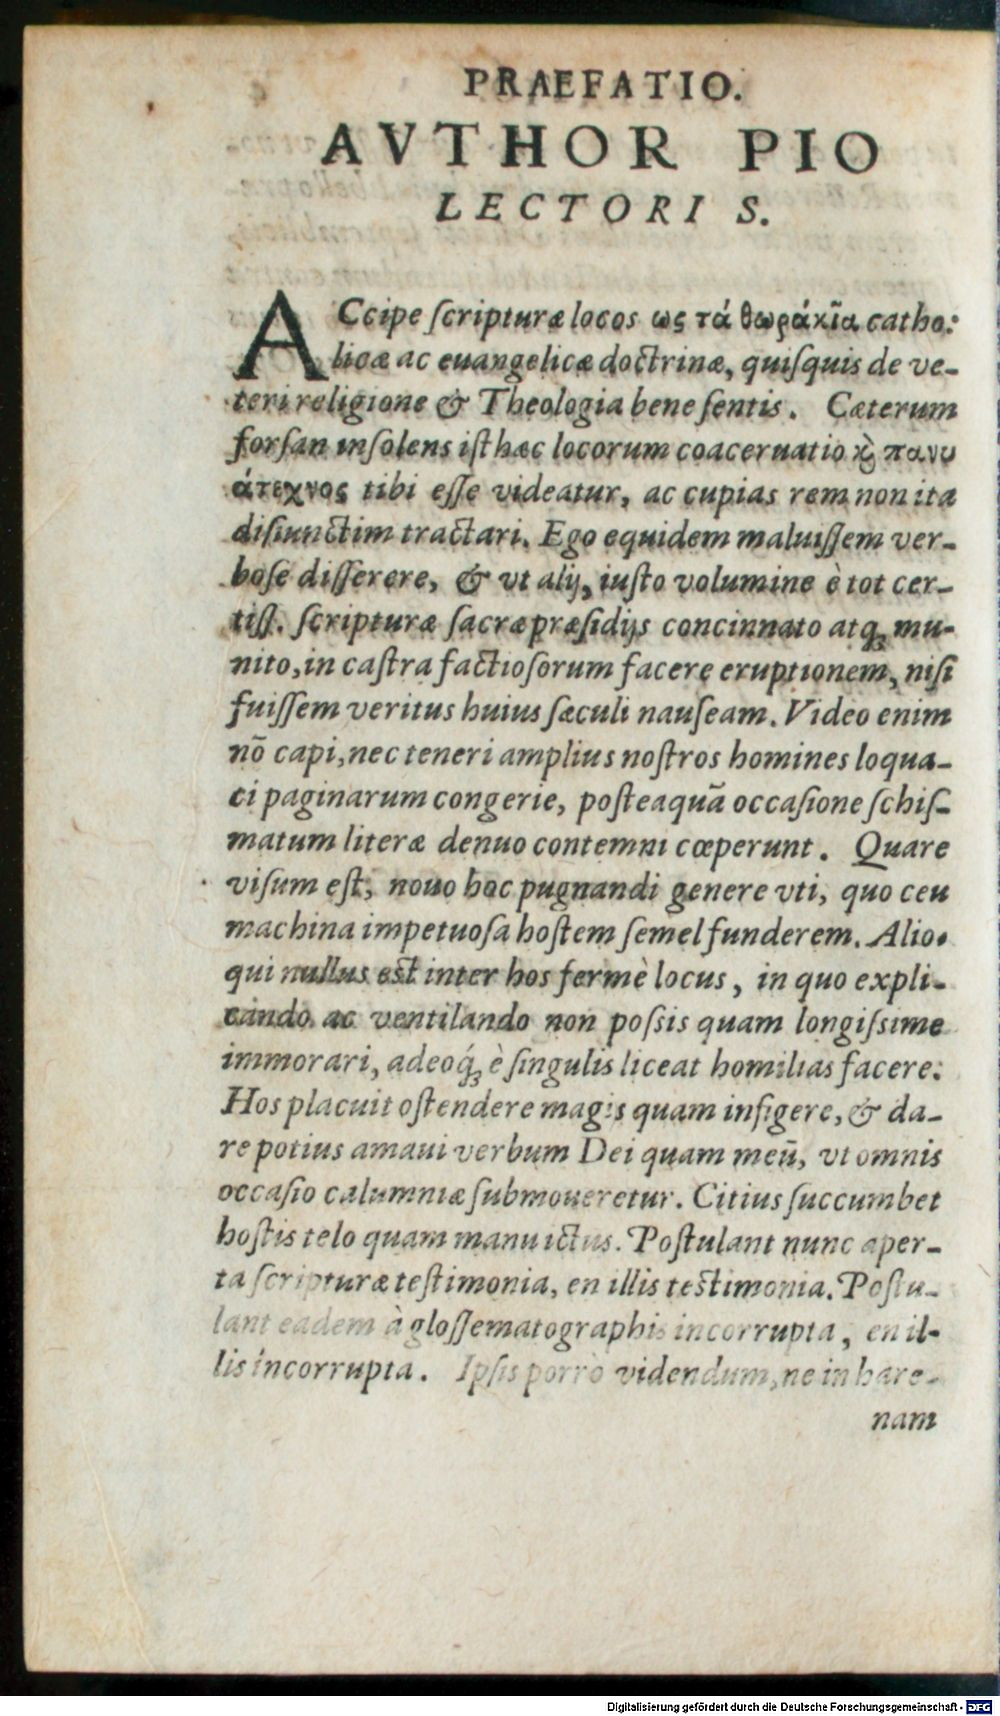 PRAEFATIO.
AVTHOR PIO
LECTORI S.
ACcipe ſcripturæ locos ως τά θωράκῖα catho-
licæ ac euangelicæ doctrinæ, quiſquis de ve-
teri religione & Theologia bene ſentis. Cæterum
forſan inſolens iſthæc locorum coaceruatio ϗ̀ πανυ
άτεχνος tibi eſſe videatur, ac cupias rem non ita
diſiunctim tractari. Ego equidem maluiſſem ver-
boſe differere, & vt alij, iuſto volumine è tot cer-
tiſſ. ſcripturæ ſacræ præſidijs concinnato atq; mu-
nito, in caſtra factioſorum facere eruptionem, niſi
fuiſſem veritus huius ſæculi nauſeam. Video enim
nō capi, nec teneri amplius noſtros homines loqua-
ci paginarum congerie, poſteaquã occaſione ſchiſ-
matum literæ denuo contemni cœperunt. Quare
viſum eſt, nouo hoc pugnandi genere vti, quo ceu
machina impetuoſa hoſtem ſemel funderem. Alio-
qui nullus est inter hos fermè locus, in quo expli-
cando ac ventilando non poſsis quam longiſsime
immorari, adeoq́; è ſingulis liceat homilias facere.
Hos placuit oſtendere magis quam infigere, & da-
re potius amaui verbum Dei quam meū, vt omnis
occaſio calumniæ ſubmoueretur. Citius ſuccumbet
hoſtis telo quam manu ictus. Poſtulant nunc aper-
ta ſcripturæ teſtimonia, en illis testimonia. Poſtu-
lant eadem à gloſſematographis incorrupta, en il-
lis incorrupta. Ipſis porrò videndum, ne in hare-
nam
Digitalisierung gefördert durch die Deutsche Forschungsgemeinschaft - DFG